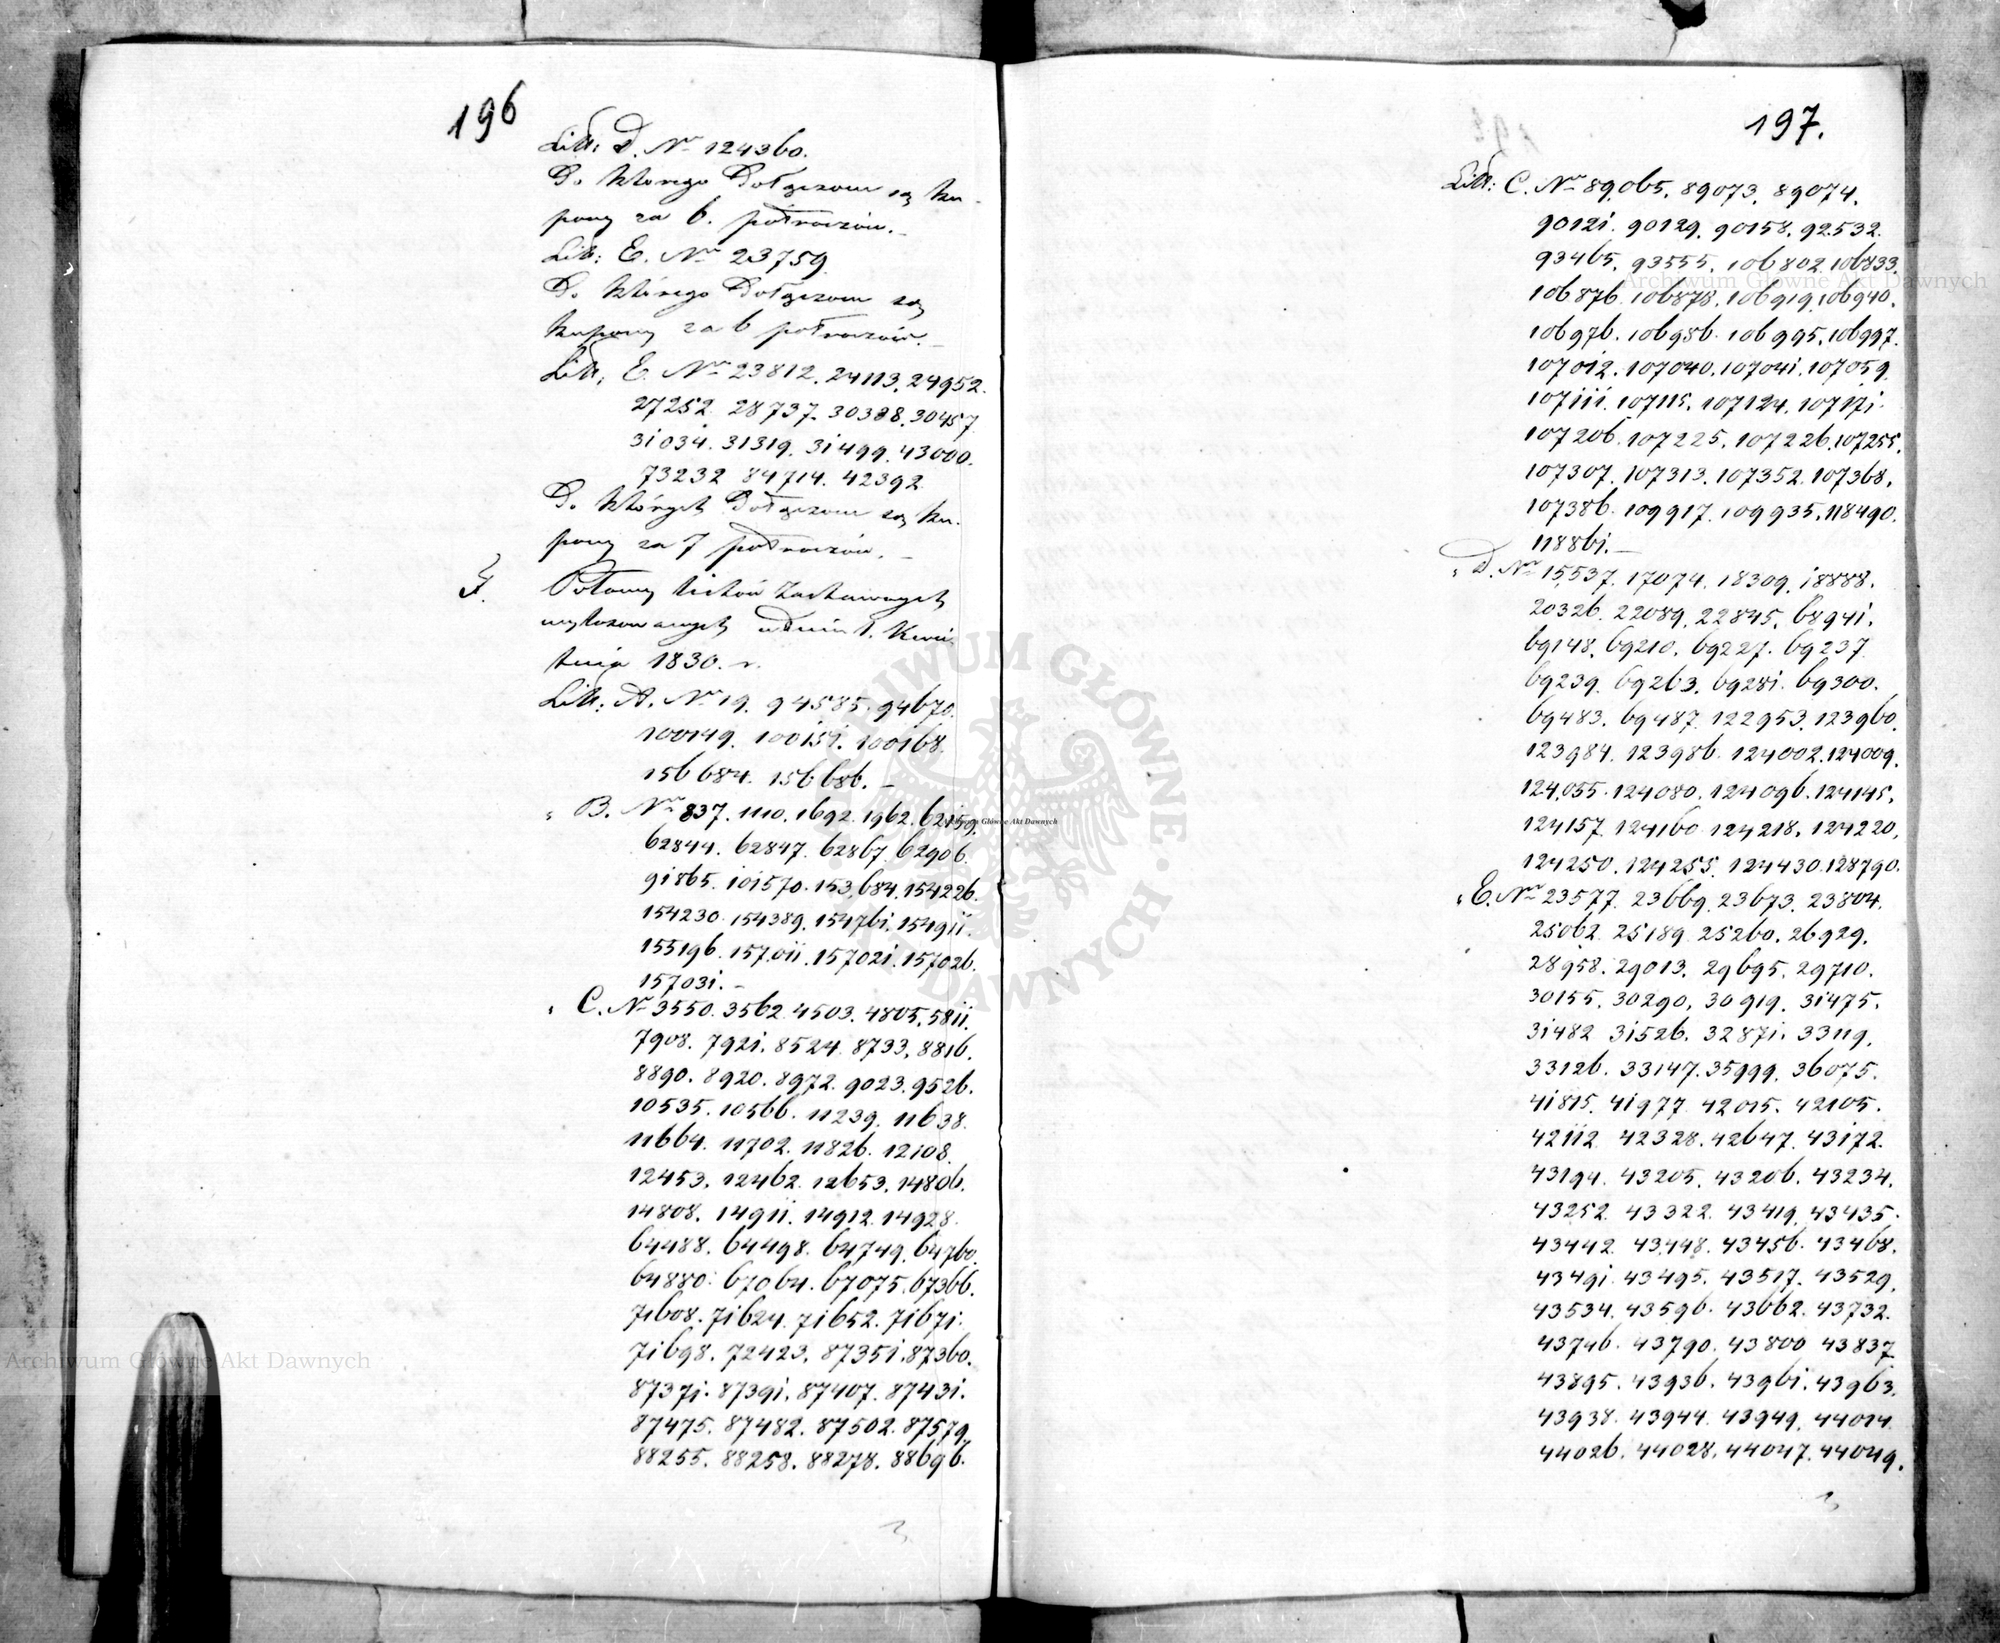 196
Litt: D. Nr 124360.
Do którego dołączone są ku-
pony za 6. półroczów.
Litt: E. Nr 23759
Do którego dołączone są
kupony za 6 półroczów.
Litt: E. Nr 23812. 24113. 24952.
27252. 28737. 30388. 30457
31034. 31319. 31499. 43000.
73232 84714. 42392
Do których dołączone są ku-
pony za 7 półroczów.
Połowy listów zastawnych
wylosowanych w dniu 1. Kwie-
tnia 1830. r.
Litt: A. Nr 19. 94585. 94670.
100149. 100151. 100168.
156684. 156686.
" B. Nr 837. 1110. 1692. 1962. 62159.
62844. 62847. 62867. 62906.
91865. 101570. 153,684. 154226.
154230. 154389. 154761. 154911.
155196. 157011. 157021. 157026.
157031.
" C. Nr 3550. 3562. 4503. 4805. 5811.
7908. 7921. 8524. 8733. 8816.
8890. 8920. 8972. 9023. 9526.
10535. 10566. 11239. 11638.
11664. 11702. 11826. 12108.
12453. 12462. 12653. 14806.
14808. 14911. 14912. 14928.
64488. 64498. 64749. 64760.
64880. 67064. 67075. 67366.
71608. 71624. 71652. 71671.
71698. 72423. 87351. 87360.
87371. 87391. 87407. 87431.
87475. 87482. 87502. 87579.
88255. 88258. 88278. 88696.
197.
Litt: C. Nr 89,065. 89073. 89074.
90121. 90129. 90158. 92532.
93465. 93555. 106802. 106833.
106876. 106878. 106919. 106940.
106976. 106986. 106995. 106997.
107012. 107040. 107041. 107059.
107111. 107115. 107124. 107171.
107206. 107225. 107226. 107255.
107307. 107313. 107352. 107368.
107386. 109917. 109935. 118490.
118861.
" D. Nr 15,537. 17074. 18309. 18888.
20326. 22089. 22845. 68941.
69148. 69210. 69227. 69237.
69239. 69263. 69281. 69300.
69483. 69487. 122953. 123960.
123984. 123986. 124002. 124009.
124,055. 124080. 124096. 124145.
124157. 124160. 124218. 124220.
124250. 124255. 124430. 128790.
" E. Nr 23577. 23669. 23673. 23804.
25062. 25189. 25260. 26929.
28958. 29013. 29695. 29710.
30155. 30290. 30919. 31475.
31482. 31526. 32871. 33119.
33126. 33147. 35999. 36075.
41815. 41977. 42015. 42105.
42112. 42328. 42647. 43172.
43194. 43205. 43206. 43234.
43252. 43322. 43419. 43435.
43442. 43448. 43456. 43468.
43491. 43495. 43517. 43529.
43534. 43596. 43662. 43732.
43746. 43790. 43800 43837
43895. 43936. 43961. 43963.
43938. 43944. 43949. 44014.
44026. 44028. 44047. 44049.
Archiwum Główne Akt Dawnych
Archiwum Główne Akt Dawnych
Archiwum Główne Akt Dawnych
ARCHIWUM GŁÓWNE AKT DAWNYCH